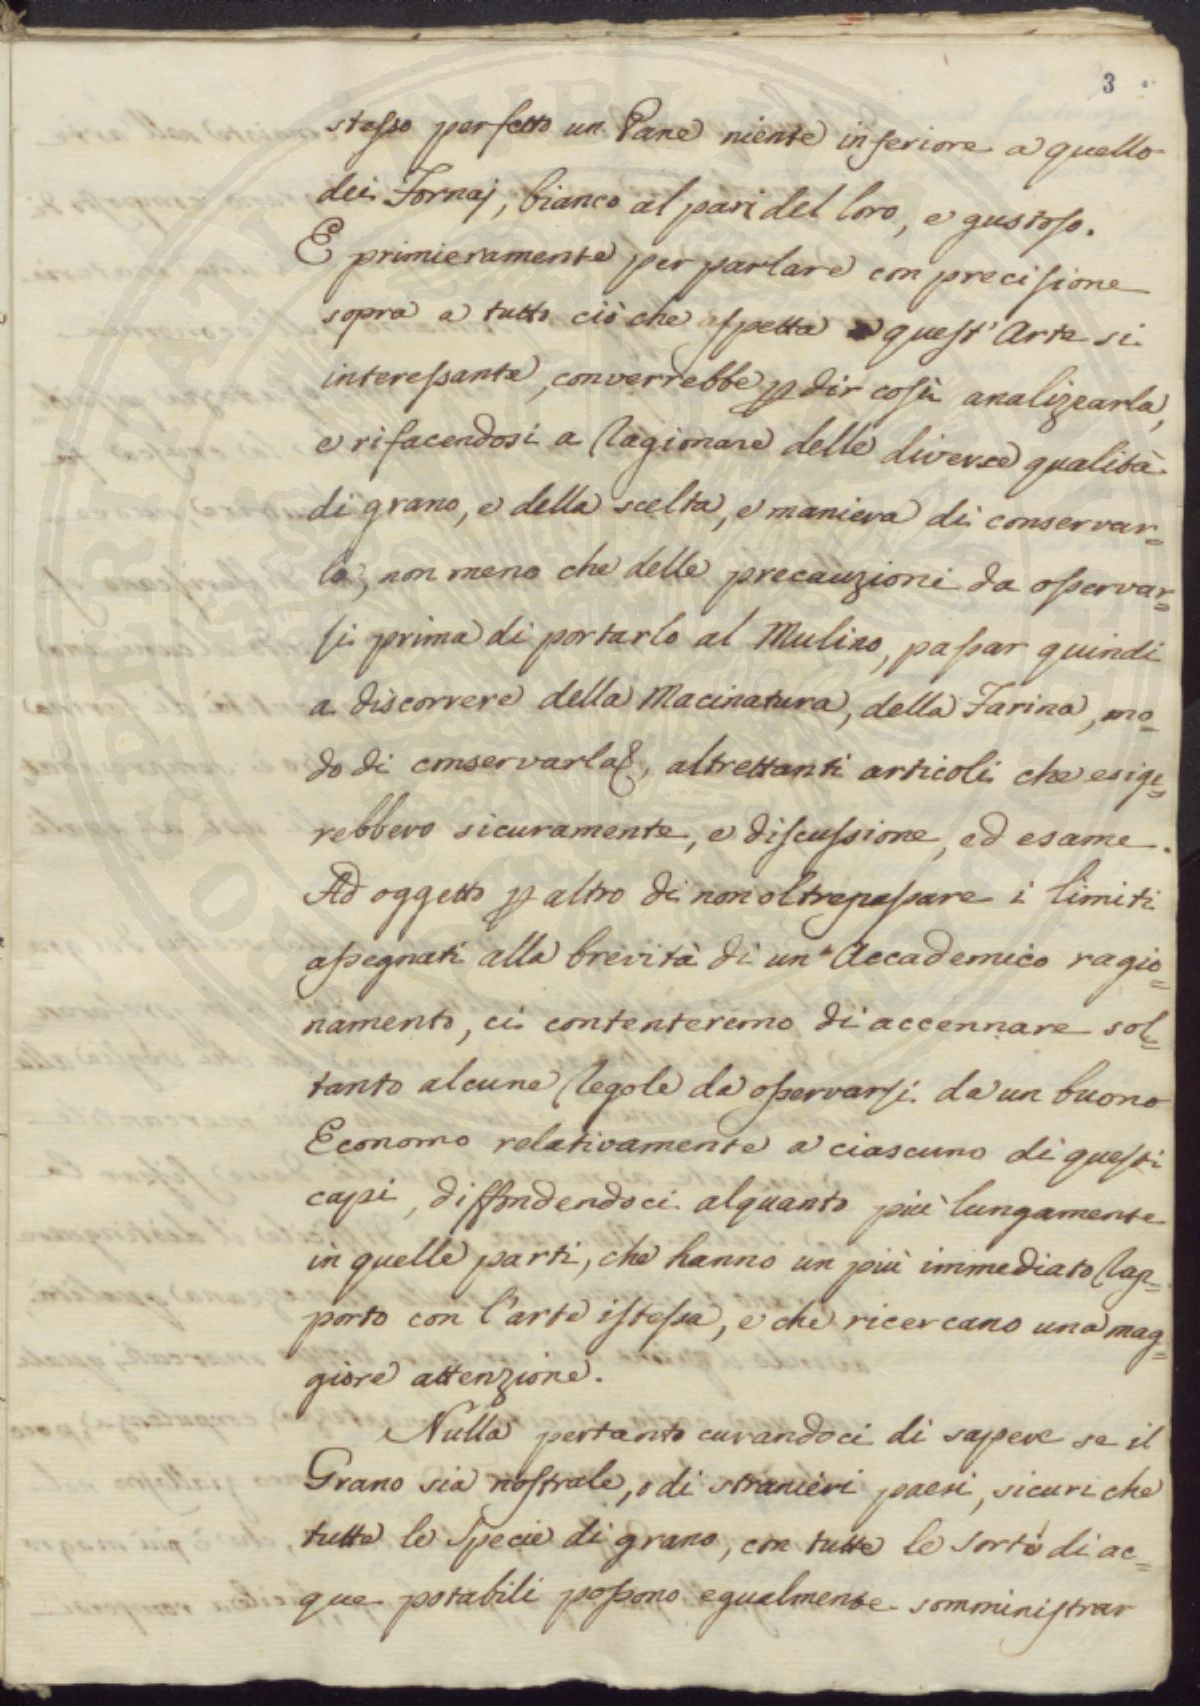 3
stesso perfetto un Pane niente inferiore a quello
dei Fornaj, bianco al pari del loro, e gustoso.
E primieramente per parlare con precisione
sopra a tutto ciò che aspetta a quest' Arte sì
interessante, converrebbe p dir così analizzarla,
e rifacendosi a ragionare delle diverse qualità
di grano, e della scelta, e maniera di conservar=
lo, non meno che delle precauzioni da osservar=
si prima di portarlo al Mulino, passar quindi
a discorrere della Macinatura, della Farina, mo=
do di conservarla &, altrettanti articoli che esige=
rebbero sicuramente, e discussione, ed esame.
Ad oggetto p altro di non oltrepassare i limiti
assegnati alla brevità di un' Accademico ragio=
namento, ci contenteremo di accennare sol=
tanto alcune regole da osservarsi da un buono
Economo relativamente a ciascuno di questi
capi, diffondendoci alquanto più lungamente
in quelle parti, che hanno un più immediato rap=
porto con l'arte istessa, e che ricercano una mag=
giore attenzione.
Nulla pertanto curandoci di sapere se il
Grano sia nostrale, o di stranieri paesi, sicuri che
tutte le specie di grano, con tutte le sorte di ac=
que potabili possono egualmente somministrar